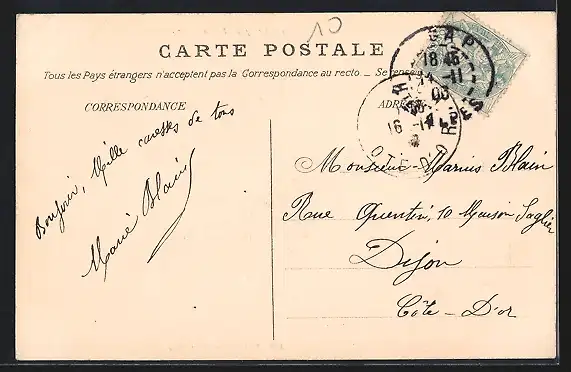 10
CARTE POSTALE
Tous les Pays étrangers n'acceptent pas la Correspondance au recto. _ Se renseigner
CORRESPONDANCE
ADRESSE
GAP
18 45
14 - 11
Bonjour, Mille caresses de tous
Marie Blain
Monsieur Marius Blain
Rue Quentin, 10 Maison Saglier
Dijon
Côte - D'or